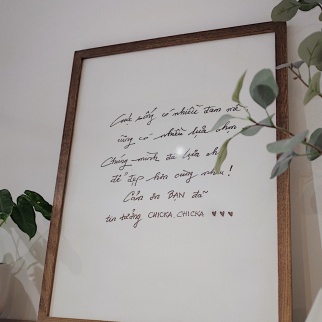 Cuộc sống có nhiều đam mê
cũng có nhiều lựa chọn
Chúng mình đã lựa chọn
để đẹp hơn cùng nhau!
Cảm ơn BẠN đã
tin tưởng CHICKA.CHICKA ♥ ♥ ♥